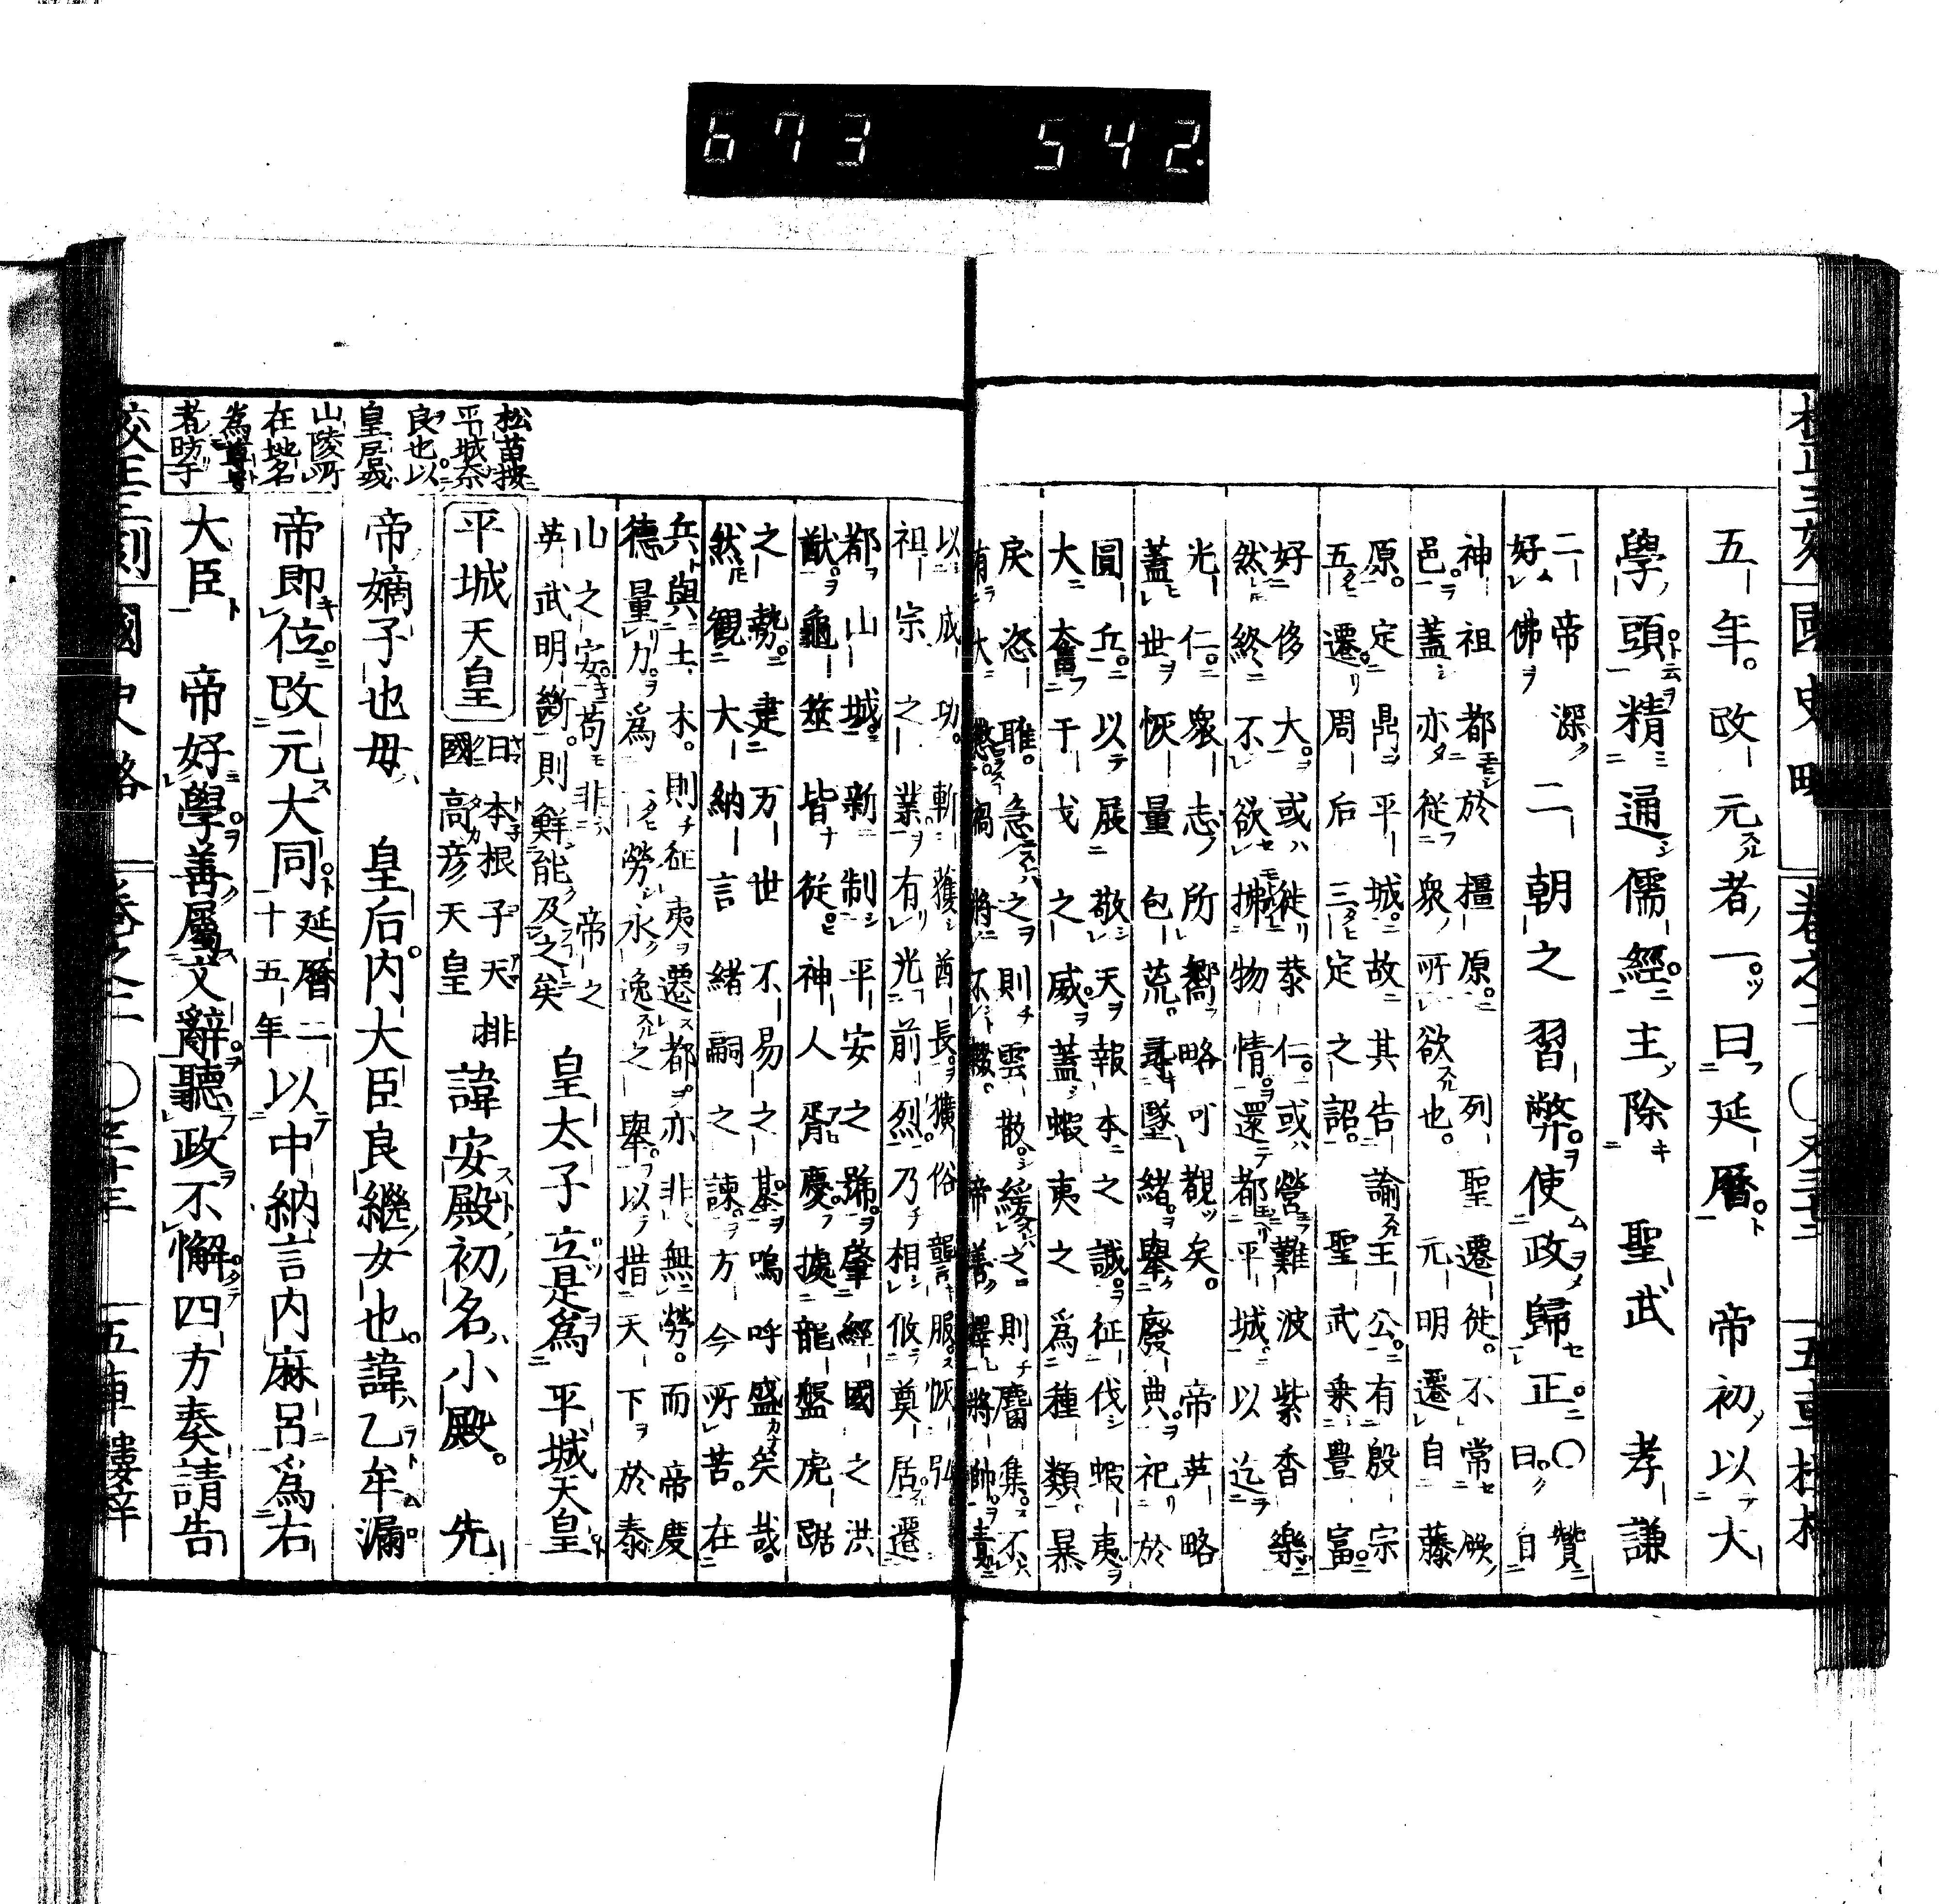 673 542.
國史略
五年。改元者一。曰延曆。 帝初以大
學頭精通儒經主除 聖武 孝謙
二帝深
好佛
二朝之習弊。使政歸正。〇
贊曰
自
神祖都於橿原。列聖遷徙。不常厥
邑。蓋亦從衆所欲也。元明遷自藤
原。定鼎平城。故其告諭王公。有殷宗
五遷。周后三定之詔。聖武乗豊富。
好侈大。或徙恭仁。或營難波紫香樂
然終不欲拂物情。還都平城。以迄
光仁。衆志所嚮略可觀矣。帝英略
蓋世恢量包荒。尋墜緒舉廢典。祀於
圓丘。以展敬天報本之誠。征伐蝦夷。
大奮干戈之威。蓋蝦夷之爲種類暴
戾恣睢。急之則雲散。緩之。則麕集。不
帝善擇將帥。責
以成功。斬獲酋長。獷俗讋服。恢弘
祖宗之業。有光前烈。乃相攸奠居。遷
都山城。新制平安之號。肇經國之洪
猷。龜筮皆從。神人胥慶。據龍盤虎踞
之勢。建万世不易之基。嗚呼盛矣哉。
然觀大納言緒嗣之諫。方今所苦。在
兵與土木。則征夷遷都。亦非無勞。而帝慶
德量力。爲一勞永逸之舉。以措天下於泰
山之安。苟非 帝之
英武明斷。則鮮能及之矣
皇太子立是爲 平城天皇
平城天皇
日本根子天排
國高彦天皇
諱安殿初名小殿。 先
帝嫡子也母 皇后。内大臣良繼女也。諱乙牟漏
帝即位。改元大同。
延曆二
十五年
以中納言内麻呂爲右
大臣 帝好學善屬文辭。聽政不懈四方奏請告
松苗按
平城奈
良也以
皇居或
山陵所
在地名
為尊号
者昉于
國史略